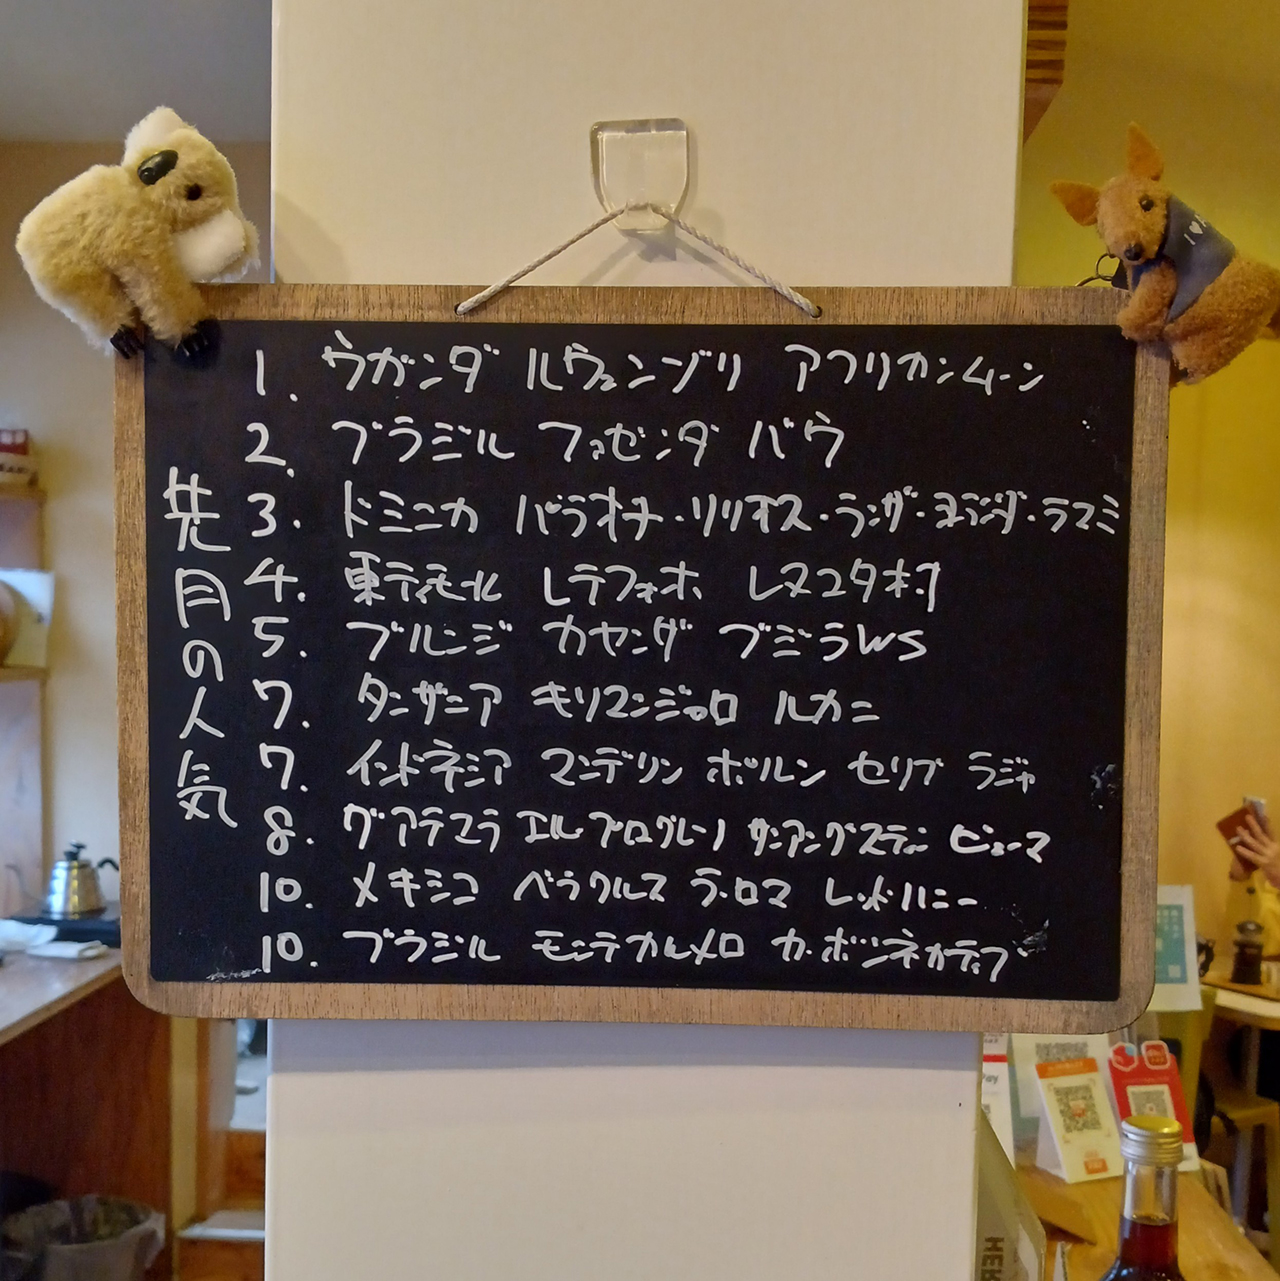 先月の人気
1. ウガンダ ルウェンゾリ アフリカンムーン
2. ブラジル ファゼンダ バウ
3. ドミニカ バラオナ・リリオス・ランザ・ヨランダ・ラマミ
4. 東ティモール レテフォホ レヌユタホ村
5. ブルンジ カヤンダ ブジラWS
7. タンザニア キリマンジャロ ルカニ
7. インドネシア マンデリン ポルン セリブ ラジャ
8. グアテマラ エルプログレソ サンアングスティン ピューマ
10. メキシコ ベラクルス ラ・ロマ レッドハニー
10. ブラジル モンテカルメロ カーボンネガティブ
I ♥
Pay
HER